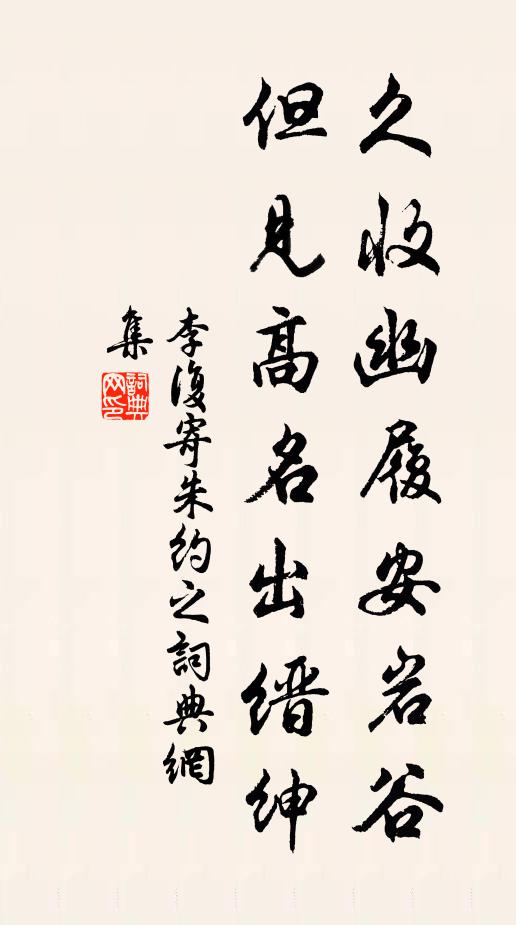 久收幽履安岩谷
但見高名出缙紳
李復寄朱約之詞典網
集
詞典
网印